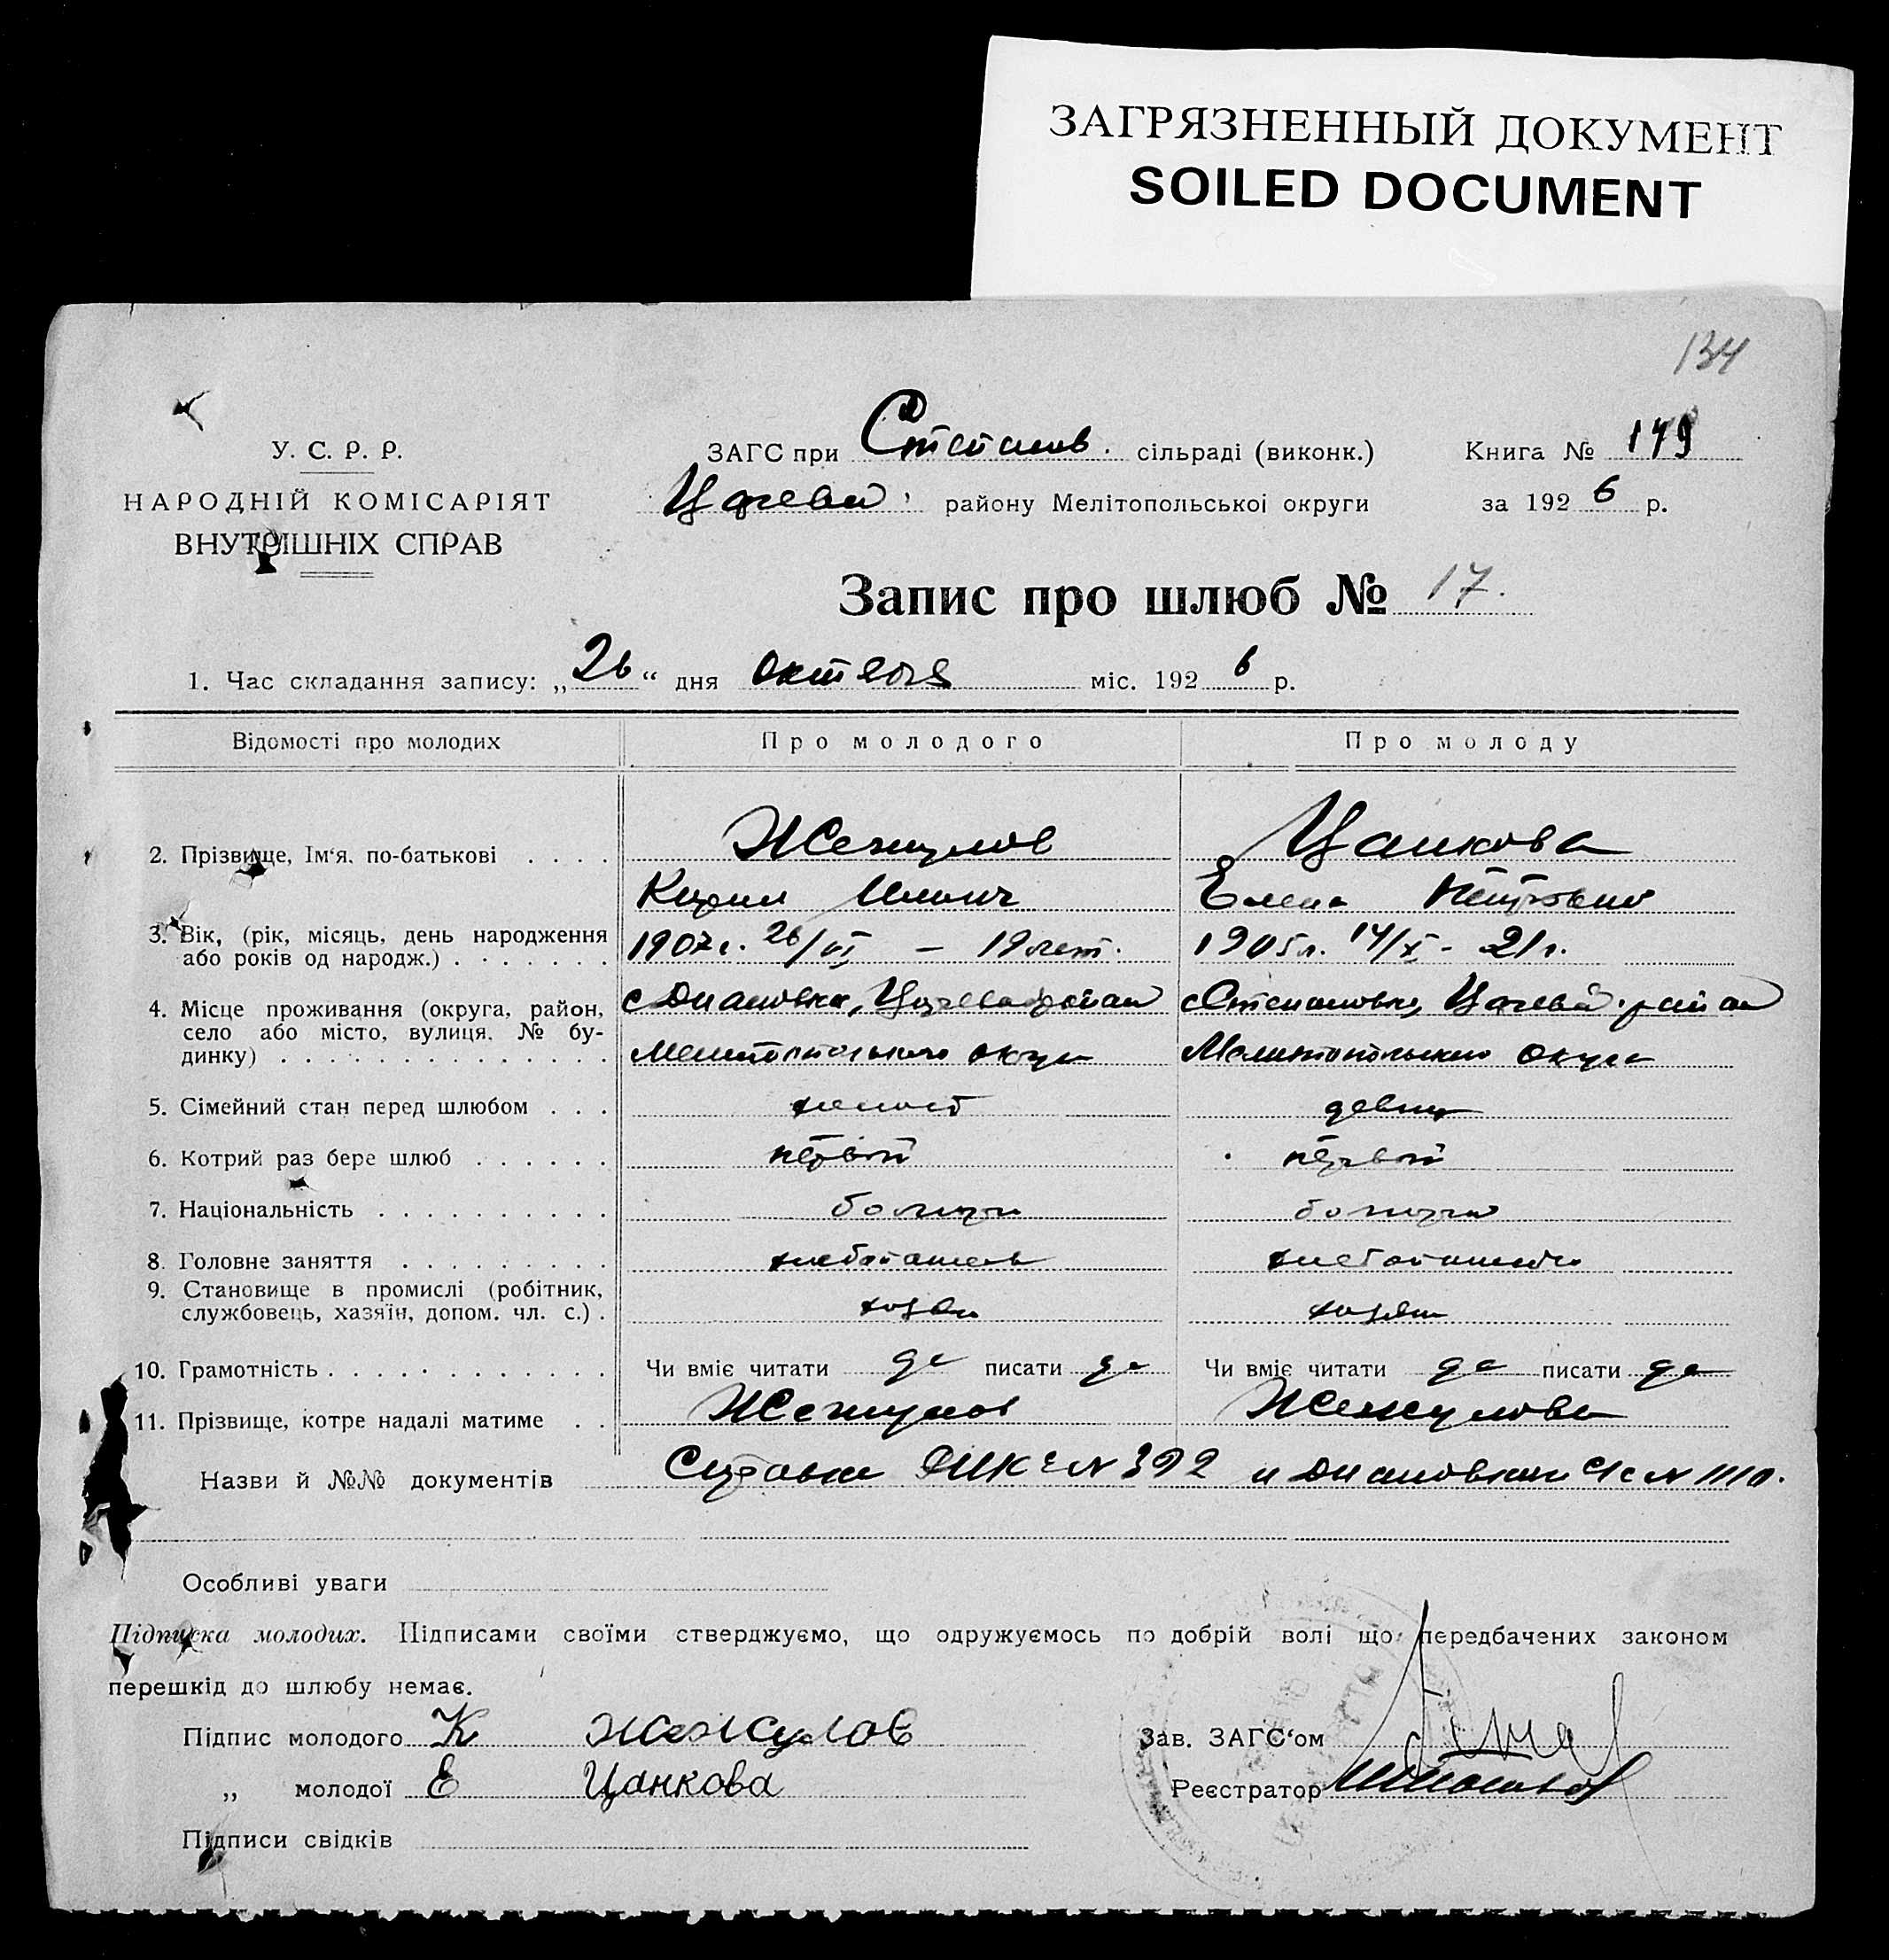 ЗАГРЯЗНЕННЫЙ ДОКУМЕНТ
SOILED DOCUMENT
134
У. С. Р. Р.
НАРОДНІЙ КОМІСАРІЯТ
ВНУТРІШНІХ СПРАВ
ЗАГС при Степанов. сільраді (виконк.) Книга № 179
Цареван. району Мелітопольської округи за 1926 р.
Запис про шлюб № 17.
1. Час складання запису: „26“ дня октября міс. 1926 р.
Відомості про молодих Про молодого Про молоду
2. Прізвище, Ім‘я, по-батькові . . . . Жежулов Цанкова
Кирил Ильич Елена Петровна
3. Вік, (рік, місяць, день народження 1907 г. 26/VI – 19 лет. 1905 г. 14/X - 21 г.
або років од народж.) . . . . . . .
4. Місце проживання (округа, район, с Диановка, район с Степановка, район
село або місто, вулиця, № бу- Мелитопольского округа Мелитопольского округа
динку) . . . . . . . . . . . . . .
5. Сімейний стан перед шлюбом . . . холост девица
6. Котрий раз бере шлюб . . . . . . первый первый
7. Національність . . . . . . . . . . болгарин болгарка
8. Головне заняття . . . . . . . . . хлебопашец хлебопашество
9. Становище в промислі (робітник, хозяин хозяин
службовець, хазяїн, допом. чл. с.) .
10. Грамотність . . . . . . . . . . . . Чи вміє читати да писати да Чи вміє читати да писати да
11. Прізвище, котре надалі матиме . . Жежулов Жежулова
Назви й №№ документів Справки № 392 и Диановского С/с № 1110.
Особливі уваги
Підписка молодих. Підписами своїми стверджуємо, що одружуємось по добрій волі що передбачених законом
перешкід до шлюбу немає.
Підпис молодого К Жежулов Зав. ЗАГС‘ом
„ молодої Е Цанкова Реєстратор
Підписи свідків